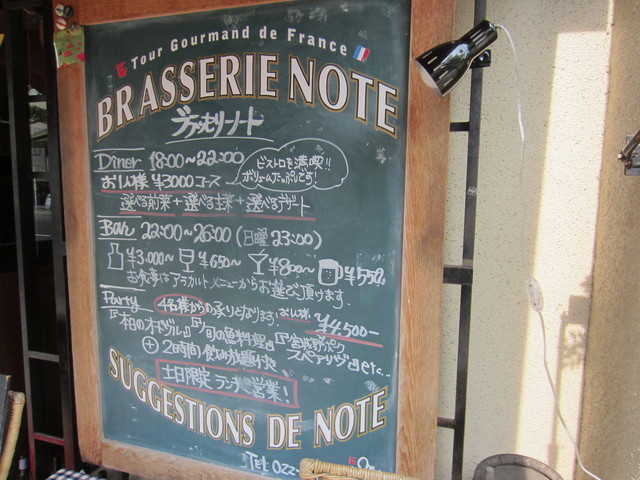 Tour Gourmand de France
BRASSERIE NOTE
ブラッセリーノート
Diner 18:00〜22:00
ビストロを満喫!!
ボリュームたっぷしです!
お1人様 ¥3000コース
選べる前菜+選べる主菜+選べるデザート
Bar 22:00〜26:00 (日曜 23:00)
¥3,000〜 ¥650〜 ¥800〜 ¥550
お食事はアラカルトメニューからお選び頂けます。
Party 4名様からの承りとなります。お1人様 ¥4,500-
『本日のオードヴル』『旬の魚料理』『宮城野ポーク
スペアリブ』 etc..
+ 2時間 飲み放題付き
土日限定 ランチ営業!
SUGGESTIONS DE NOTE
TEL 022-